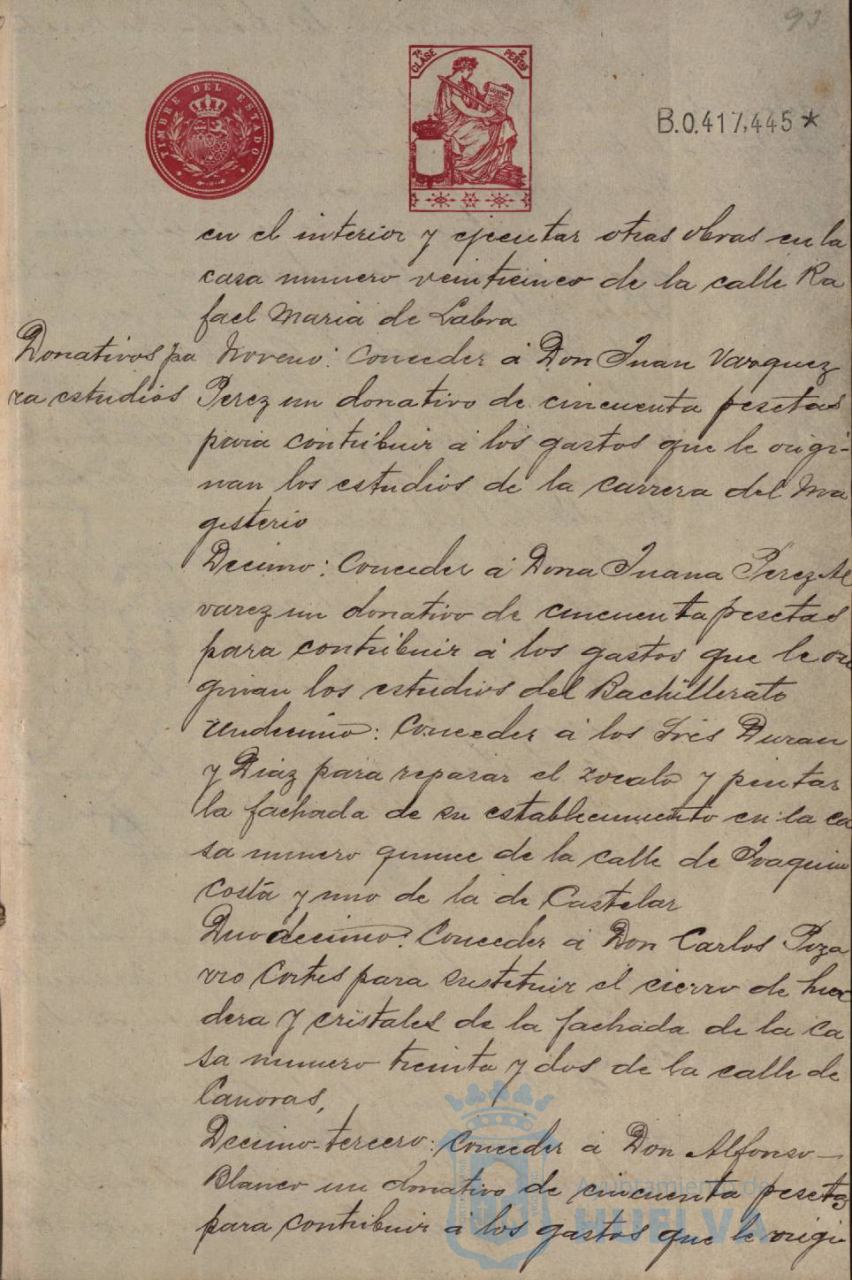 93
TIMBRE DEL ESTADO
7ª CLASE 2 PESTAS
B.0.417,445 *
en el interior y ejecutar otras obras en la
casa numero veinticinco de la calle Ra
fael Maria de Labra
Donativos pa
ra estudios
Noveno: Conceder á Don Juan Vazquez
Perez un donativo de cincuenta pesetas
para contribuir á los gastos que le origi-
nan los estudios de la carrera del Ma
gisterio
Decimo: Conceder á Dona Juana Perez Al
varez un donativo de cincuenta pesetas
para contribuir á los gastos que le ori
ginan los estudios del Bachillerato
Undecimo: Conceder á los Sres Duran
y Diaz para repasar el zocalo y pintar
la fachada de su establecimiento en la ca
sa numero quince de la calle de Joaquin
Costa y uno de la de Castelar
Duodecimo: Conceder á Don Carlos Piza
rro Cortes para sustituir el cierro de ma
dera y cristales de la fachada de la ca
sa numero treinta y dos de la calle de
Canovas,
Decimo-tercero: Conceder á Don Alfonso
Blanco un donativo de cincuenta pesetas
para contribuir á los gastos que le origi
Ayuntamiento de
HUELVA